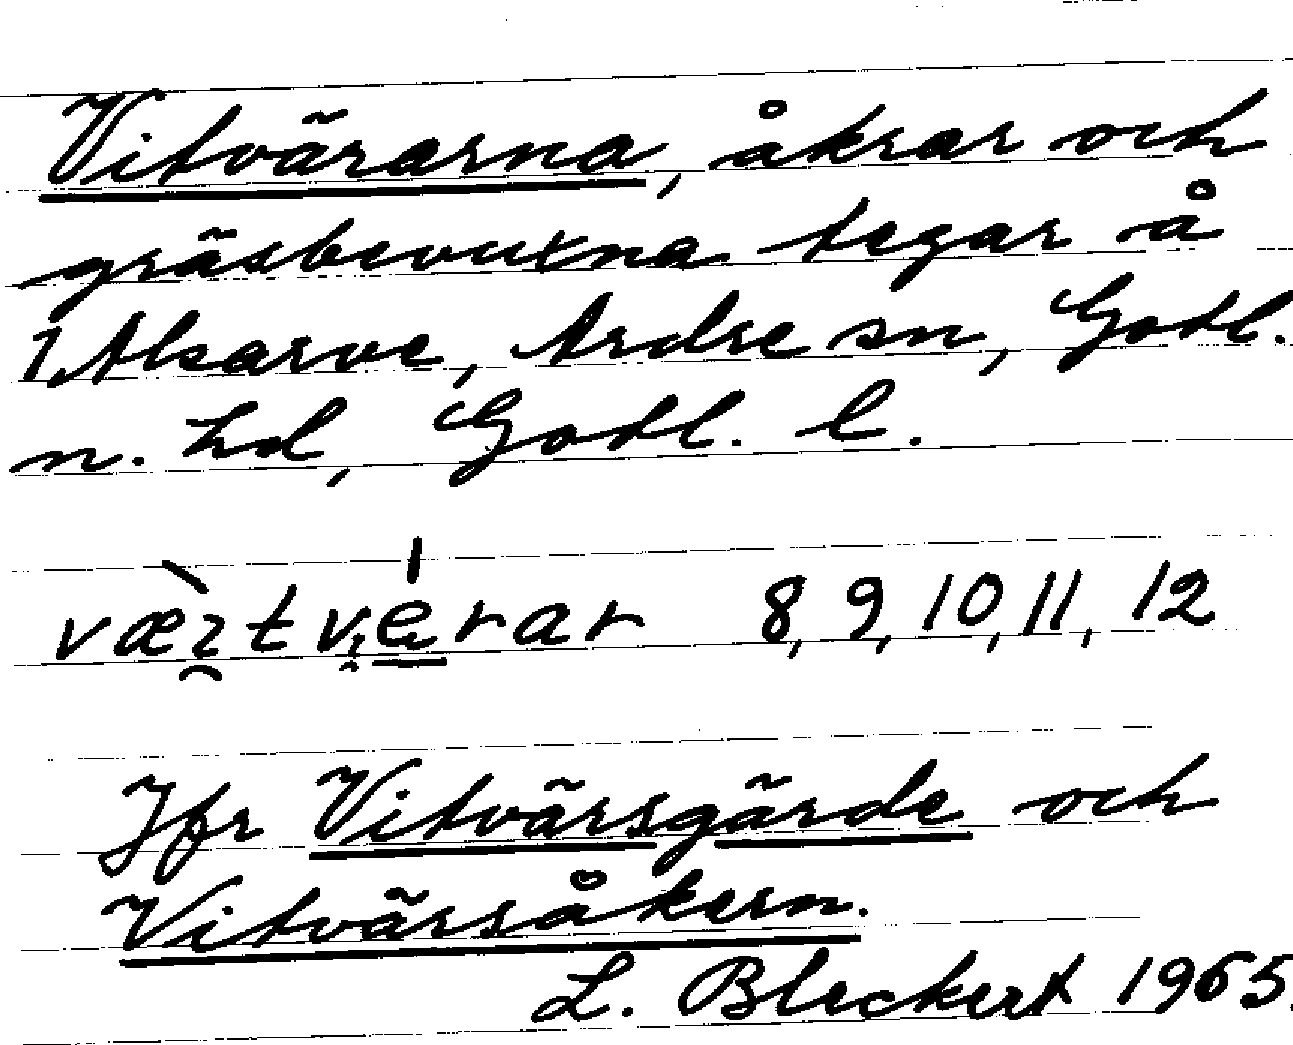 Vitvärarna, åkrar och
gräsbevuxna tegar å
1, Alsarve, Ardre sn, Gotl.
n. hd, Gotl. l.
8, 9, 10, 11, 12
Jfr Vitvärsgärde och
Vitvärsåkern.
L. Bleckert 1965.